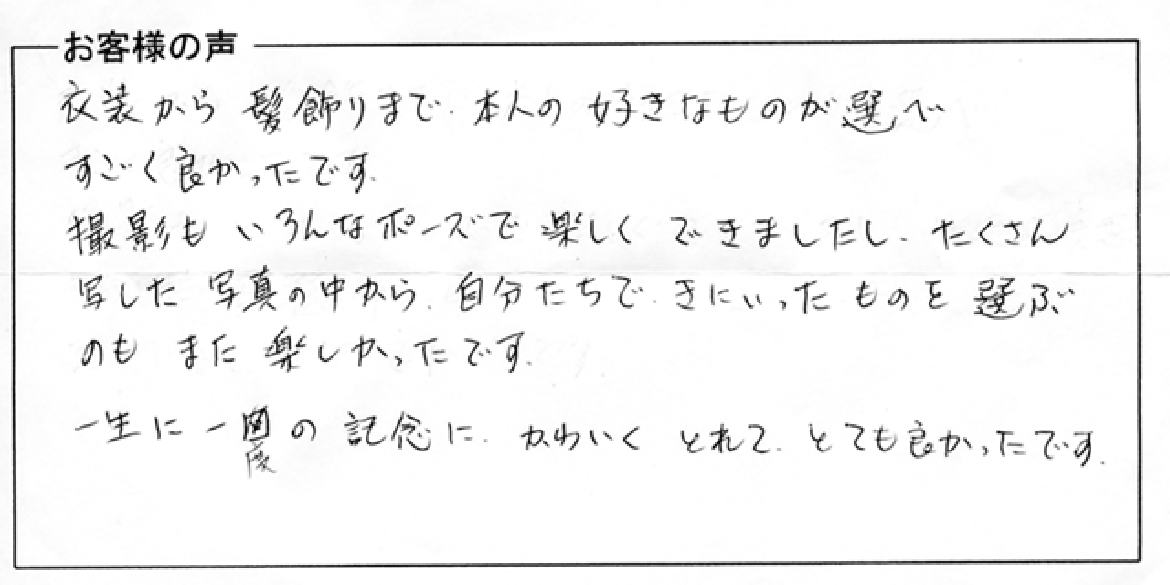 お客様の声
衣装から 髪飾りまで、本人の 好きなものが選べ
すごく良かったです。
撮影も いろんなポーズで 楽しく できましたし、たくさん
写した 写真の中から、自分たちで、きにいった ものを 選ぶ
のも また 楽しかったです。
一生に一度の 記念に、かわいく とれて、とても良かったです。